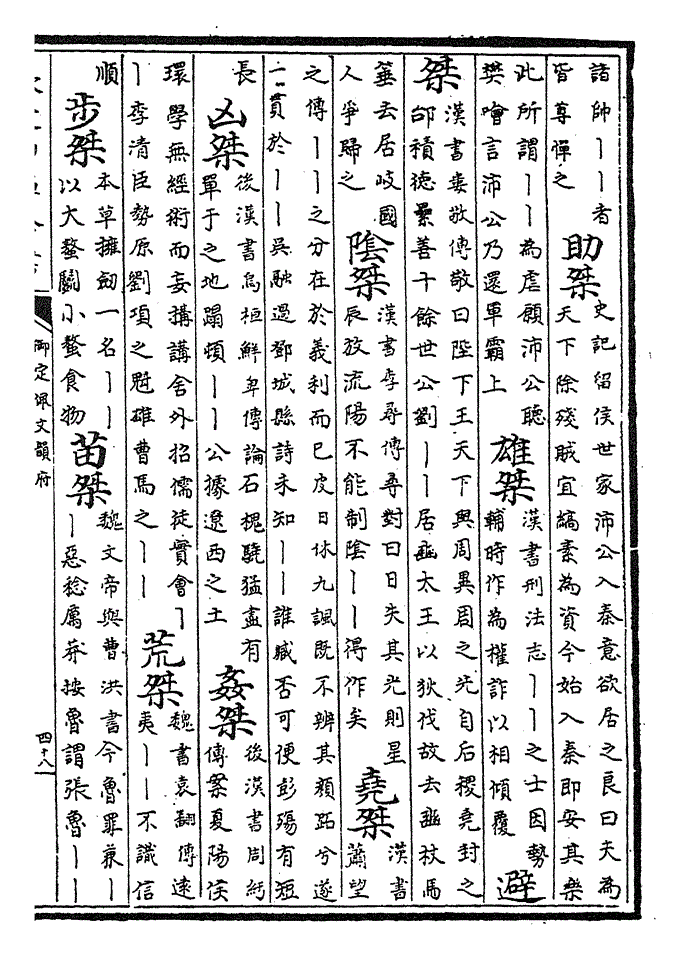 諸帥丨丨者
皆尊憚之
助桀
史記留侯世家沛公入秦意欲居之良曰夫為
天下除殘賊宜縞素為資今始入秦即安其樂
此所謂丨丨為虐願沛公聽
樊噲言沛公乃還軍霸上
雄桀
漢書刑法志丨丨之士因勢
輔時作為權詐以相傾覆
避
桀
漢書婁敬傳敬曰陛下王天下與周異周之先自后稷堯封之
邰積德絫善十餘世公劉丨丨居豳太王以狄伐故去豳杖馬
箠去居岐國
人爭歸之
陰桀
漢書李尋傳尋對曰日失其光則星
辰放流陽不能制陰丨丨得作矣
堯桀
漢書
蕭望
之傳丨丨之分在於義利而已皮日休九諷既不辨其顏跖兮遂
一貫於丨丨吳融過鄧城縣詩未知丨丨誰臧否可便彭殤有短
長
凶桀
後漢書烏桓鮮卑傳論石槐驍猛盡有
單于之地蹋頓丨丨公據遼西之土
姦桀
後漢書周紆
傳案夏陽侯
環學無經術而妄搆講舍外招儒徒實會丨
丨李清臣勢原劉項之魁雄曹馬之丨丨
荒桀
魏書袁翻傳遠
夷丨丨不識信
順
步桀
本草擁劍一名丨丨
以大螯鬭小螯食物
苗桀
魏文帝與曹洪書今魯罪兼丨
丨惡稔厲莽按魯謂張魯丨丨
御定佩文韻府
四十八